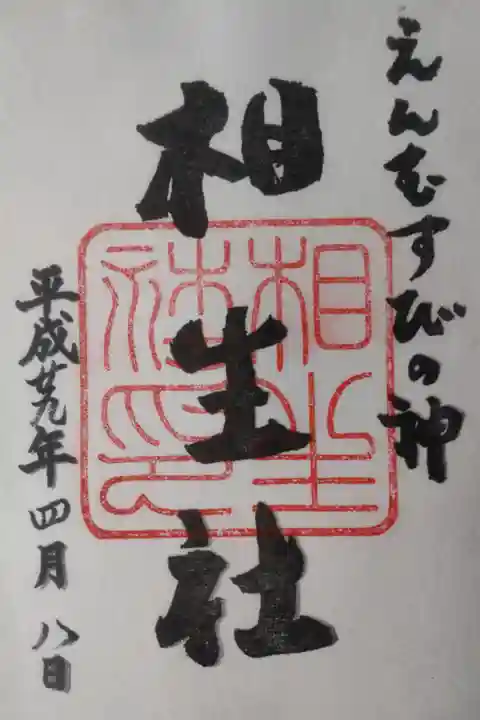 えんむすびの神
相生社
平成廿九年四月八日
相生